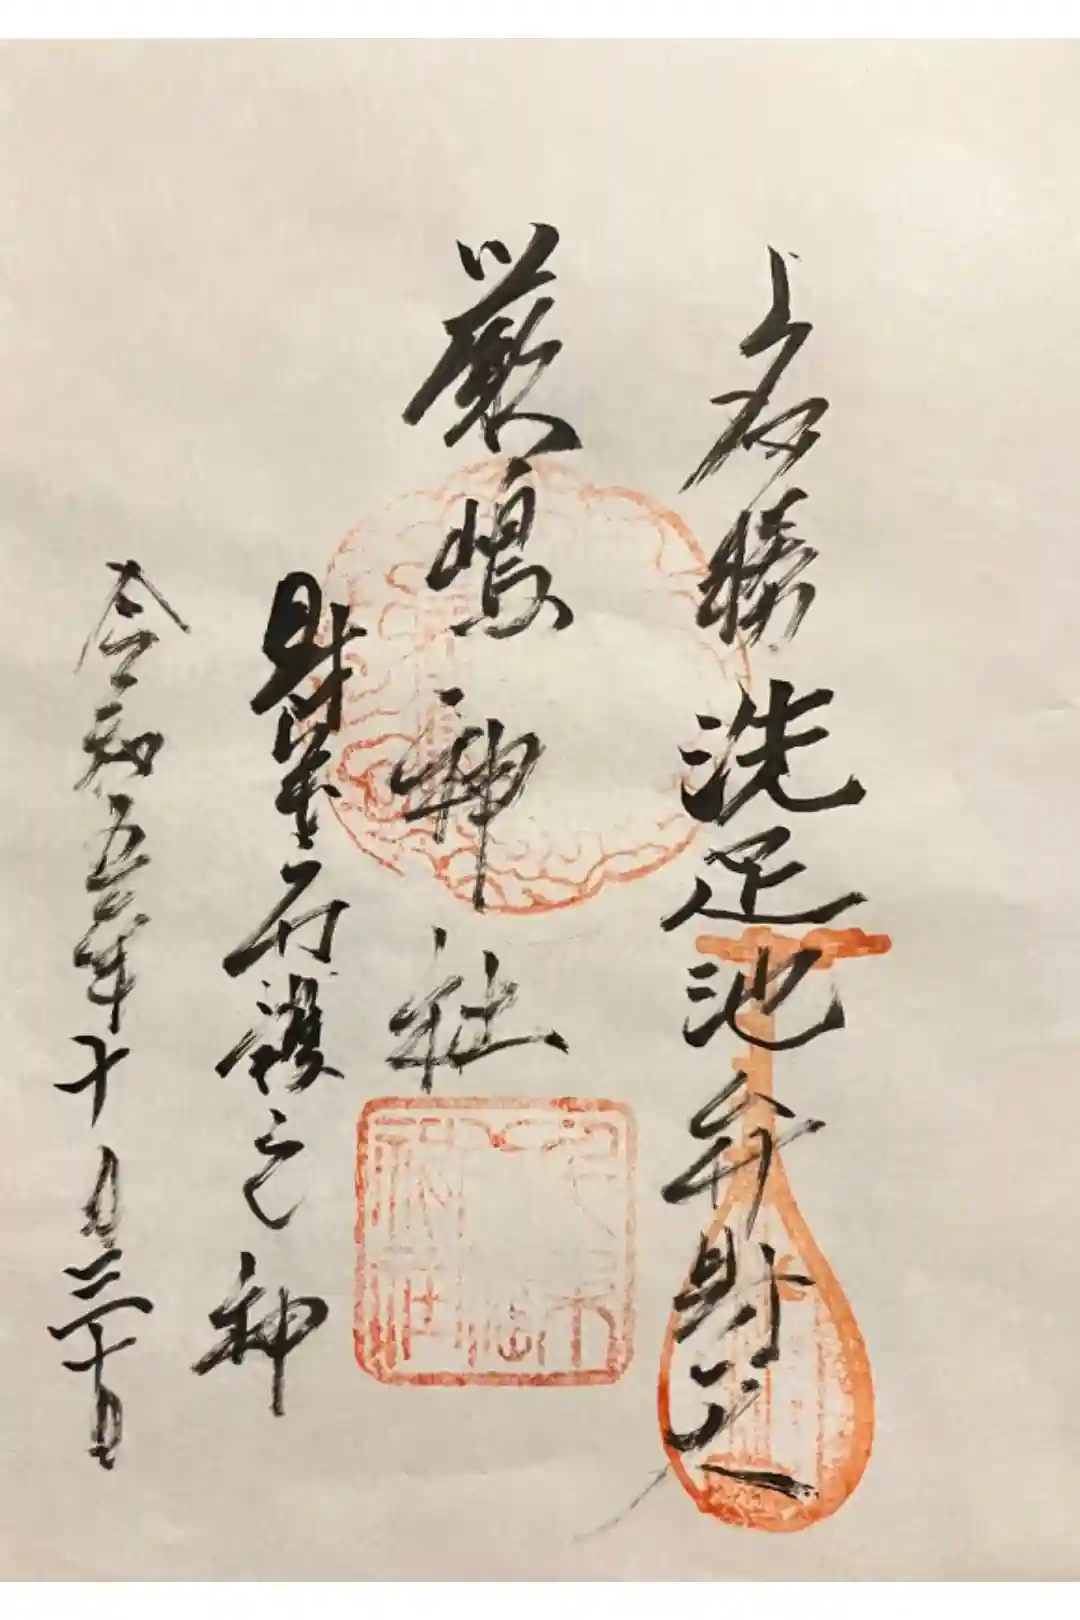 名勝洗足池弁財天
厳嶋神社
財 護之神
令和五年十月三十日